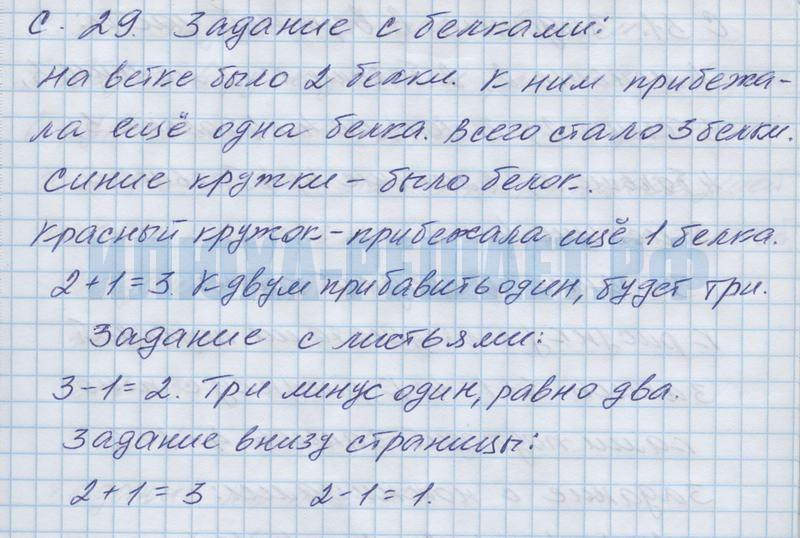 с. 29. Задание с белками:
На ветке было 2 белки. К ним прибежа-
ла ещё одна белка. Всего стало 3 белки.
Синие кружки – было белок.
Красный кружок – прибежала ещё 1 белка.
2+1=3. К двум прибавить один, будет три.
Задание с листьями:
3-1=2. Три минус один, равно два.
Задание внизу страницы:
2+1=3 2-1=1.